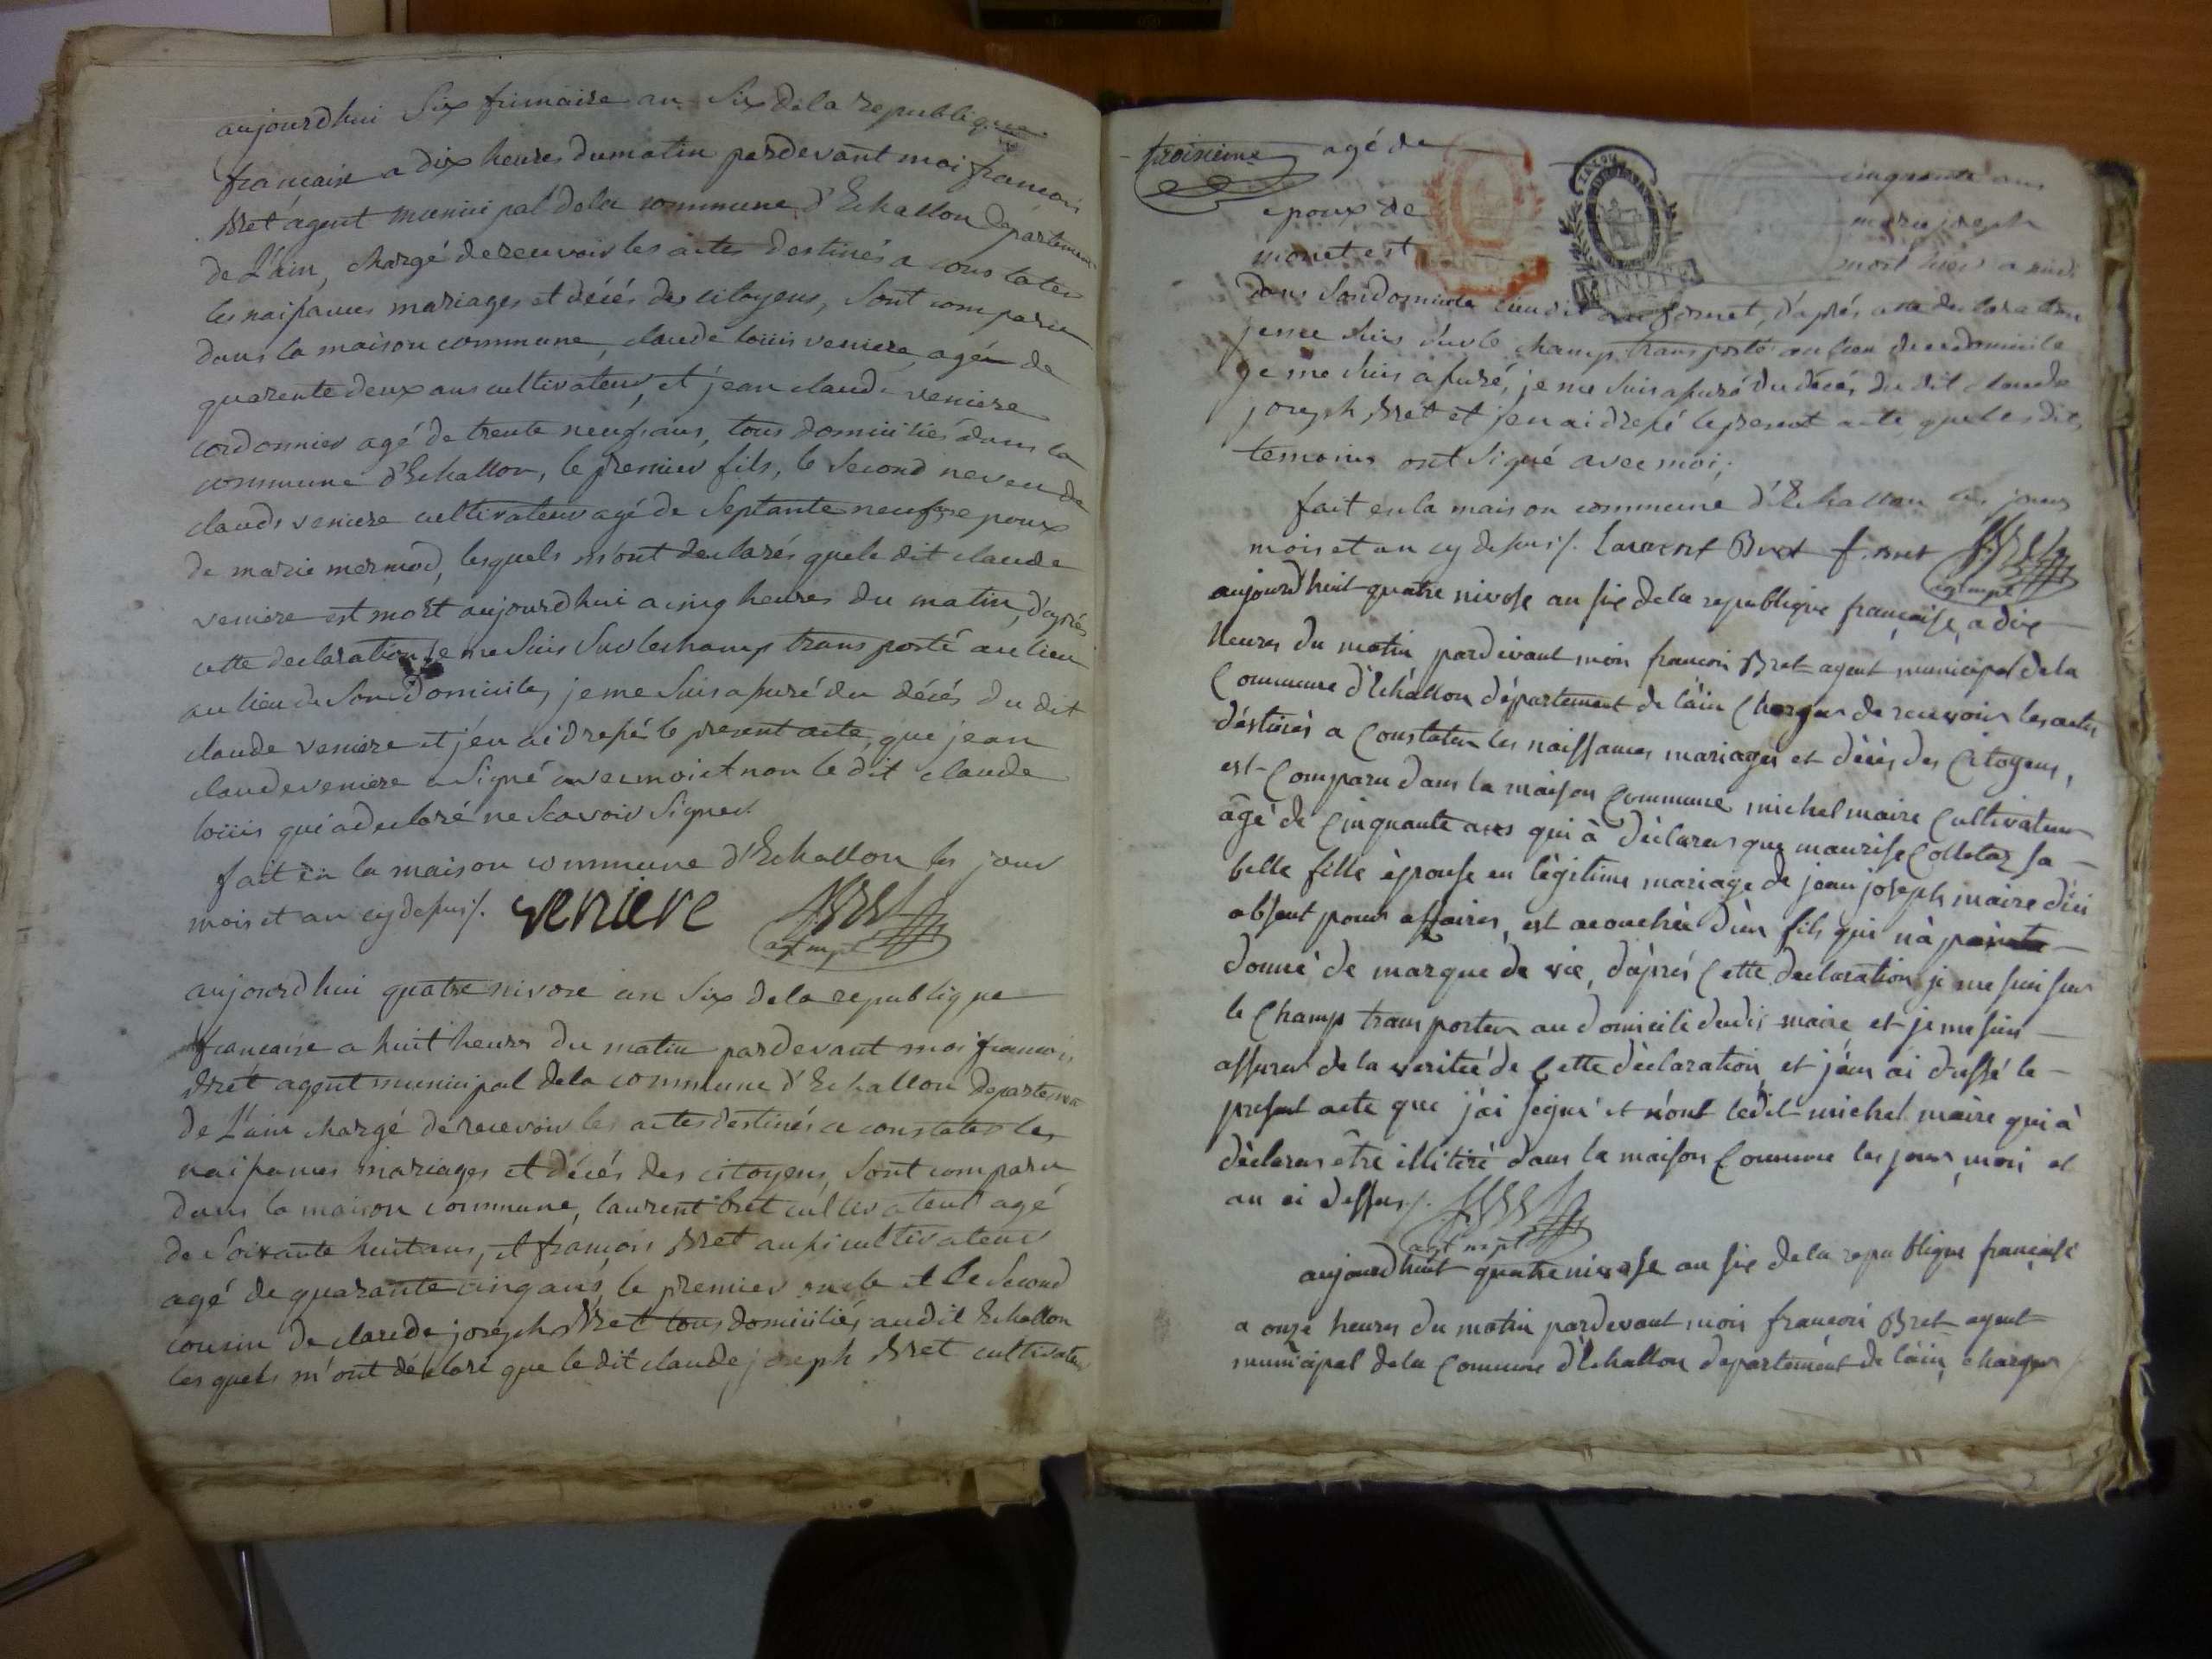 aujourdhui Six frimaise an Six dela republique
française a dix heures dumatin pardevant moi francois
Bret agent municipal dela commune d'Echallon departement
de L'ain, chargé derecevoir les actes destinés a constater
les naissances mariages et décés des citoyens, Sont comparu
dans la maison commune, claude loüis veniere agée de
quarente deux ans cultivateur, et jean claude veniere
cordonnier agé de trente neuf ans, tous domiciliés dans la
commune d'Echallon, le premier fils, le Second neveu de
claude veniere cultivateur agé de Septante neuf ans epoux
de marie mermod, lesquels m'ont declarés quele dit claude
veniere est mort aujourdhui a cinq heures du matin, d'aprés
cette declaration je me Suis Sur lechamp transporté au lieu
au lieu de Son domicile, je me Suis assuré du décés du dit
claude veniere et j'en ai dressé le present acte, que jean
claude veniere a Signé avec moi et non le dit claude
loüis qui a declaré ne Scavoir Signer
fait en la maison commune d'Echallon les jour
mois et an cy dessus/. veniere Bret
agt mpl
aujourdhui quatre nivose an Six dela republique
francaise a huit heures du matin pardevant moi francois
Bret agent municipal dela commune d'Echallon departement
de L'ain chargé de recevoir les actes destinés a constater les
naissances mariages et décés des citoyens, Sont comparu
dans la maison commune, laurent bret cultivateur agé
de Soixante huit ans, et françois Bret aussi cultivateur
agé de quarante cinq ans, le premier oncle et le Second
cousin de claude joseph Bret tous domiciliés audit Echallon
lesquels m'ont déclaré que le dit claude joseph Bret cultivateur
troisieme agé de cinquante ans
epoux de marie joseph
monet est mort hier a midi
dans Son domicile lieu dit au Cornet, d'aprés cette declaration
je me Suis Sur le champ transporté au lieu de ce domicile
je me Suis assuré, je me Suis assuré du décés du dit claude
joseph Bret et j'en ai dressé le present acte que les dits
temoins ont Signé avec moi,
fait en la maison commune d'Echallon les jours
mois et an cy dessus/. Laurent Bret f. Bret Bret
agt mpl
aujourd'huit quatre nivose an six dela republique française, a dix
heures du matin pardevant moi francois Bret agent municipal dela
Commune d'Echallon département de láin Charger de recevoir les actes
déstinés a Constater les naissances mariages et décés des Citoyens,
est Comparu dans la maison Commune michel maire Cultivateur
âgé de Cinquante ans qui à déclarer que maurise Colletaz sa
belle fille épouse en légitime mariage de jean joseph maire dici
absent pour affaires, est acouchée d'un fils qui n'a point
donné de marque de vie, dáprés Cette declaration je me suis sur
le Champ transporter au domicile dudit maire et je me suis
assurer de la veritée de Cette déclaration, et j'en ai dressé le
present acte que j'ai signé et n'ont ledit michel maire qui à
déclarer être illitiré dans la maison Commune les jour, mois et
an ci dessus/. Bret
agt mpl
aujourdhuit quatre nivose an six de la republique française
a onze heures du matin pardevant moi francois Bret agent
municipal dela Commune d'Echallon departement de láin, charger
MINUTE